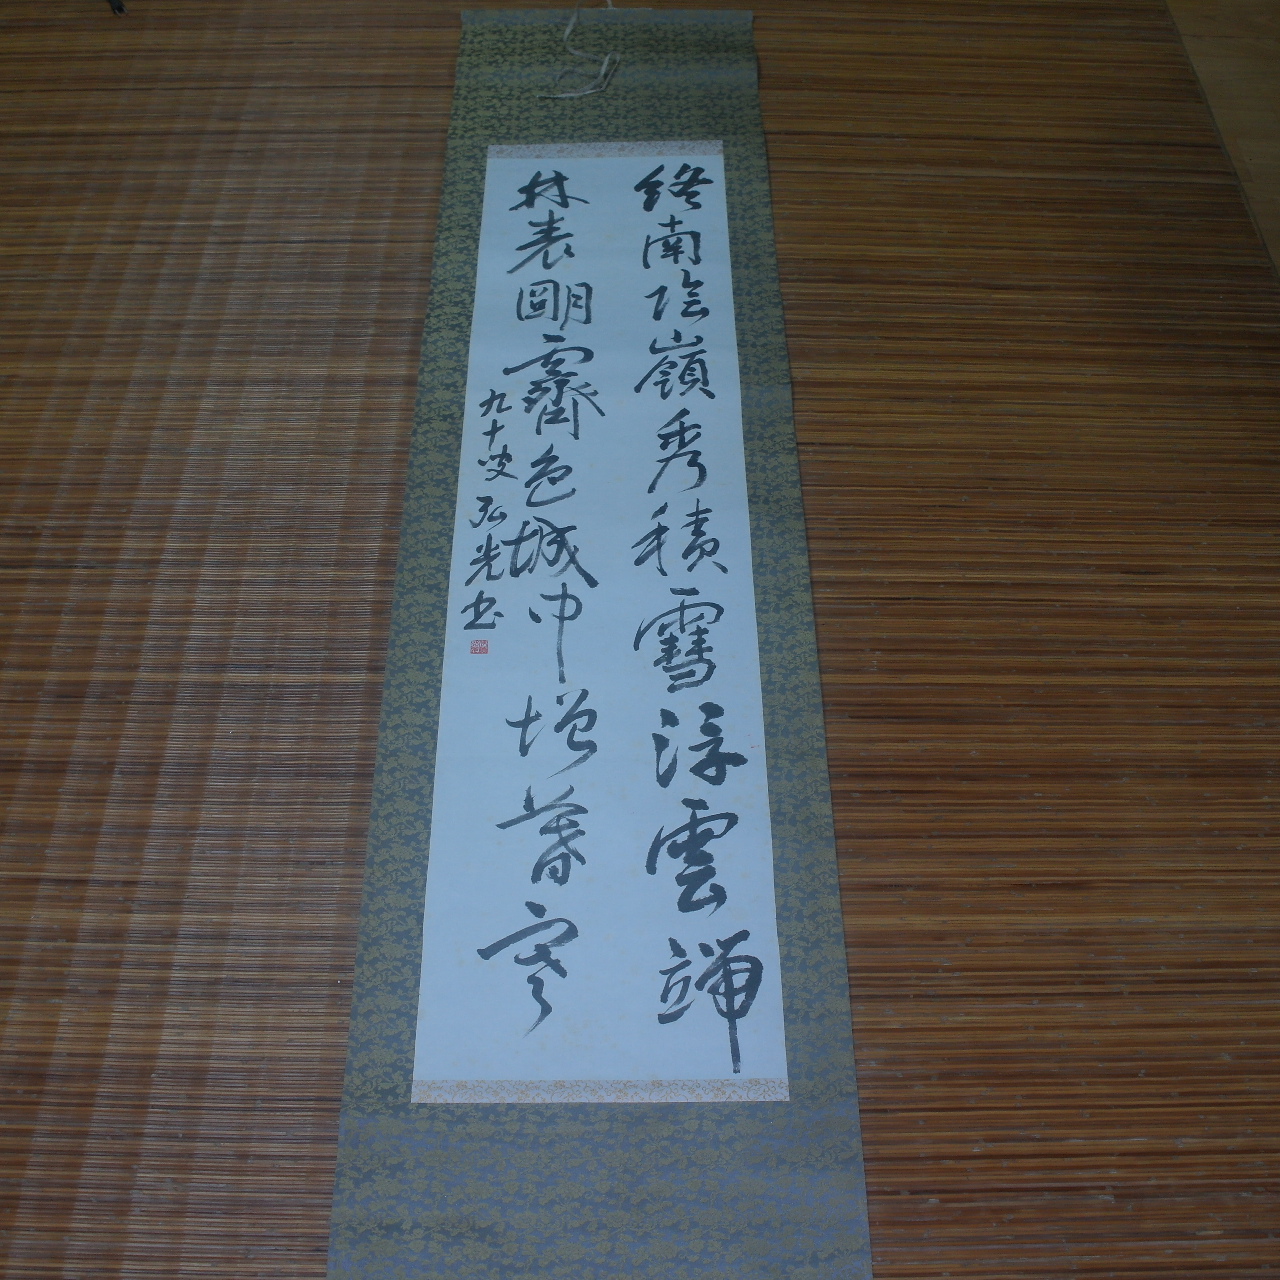 終南陰嶺秀積雪浮雲端
林表朙霽色城中增暮寒
九十叟弘光書